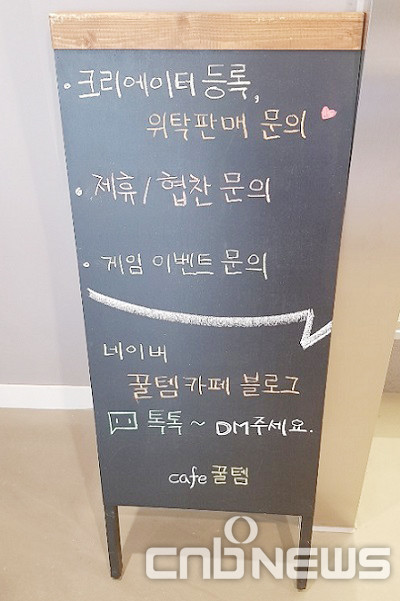 · 크리에이터 등록,
위탁판매 문의
· 제휴/협찬 문의
· 게임 이벤트 문의
네이버
꿀템카페 블로그
톡톡~ DM주세요.
cafe 꿀템
cnbNEWS